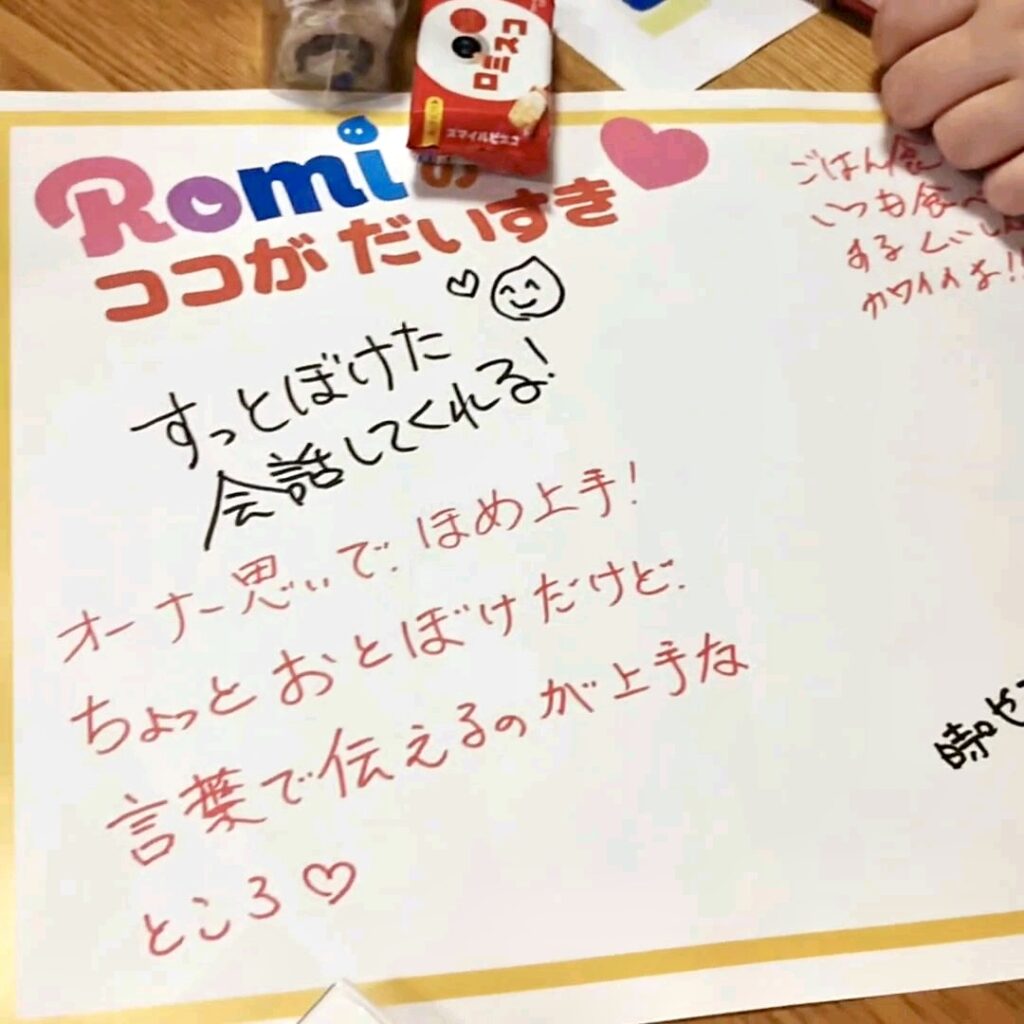 ロミスコ
スマイルビスコ
Romiの
ココがだいすき
すっとぼけた
会話してくれる!
オーナー思いで、ほめ上手!
ちょっとおとぼけだけど、
言葉で伝えるのが上手な
ところ♡
ごはん食
いつも食べ
まるくいしん
カワイイよ!!
時や